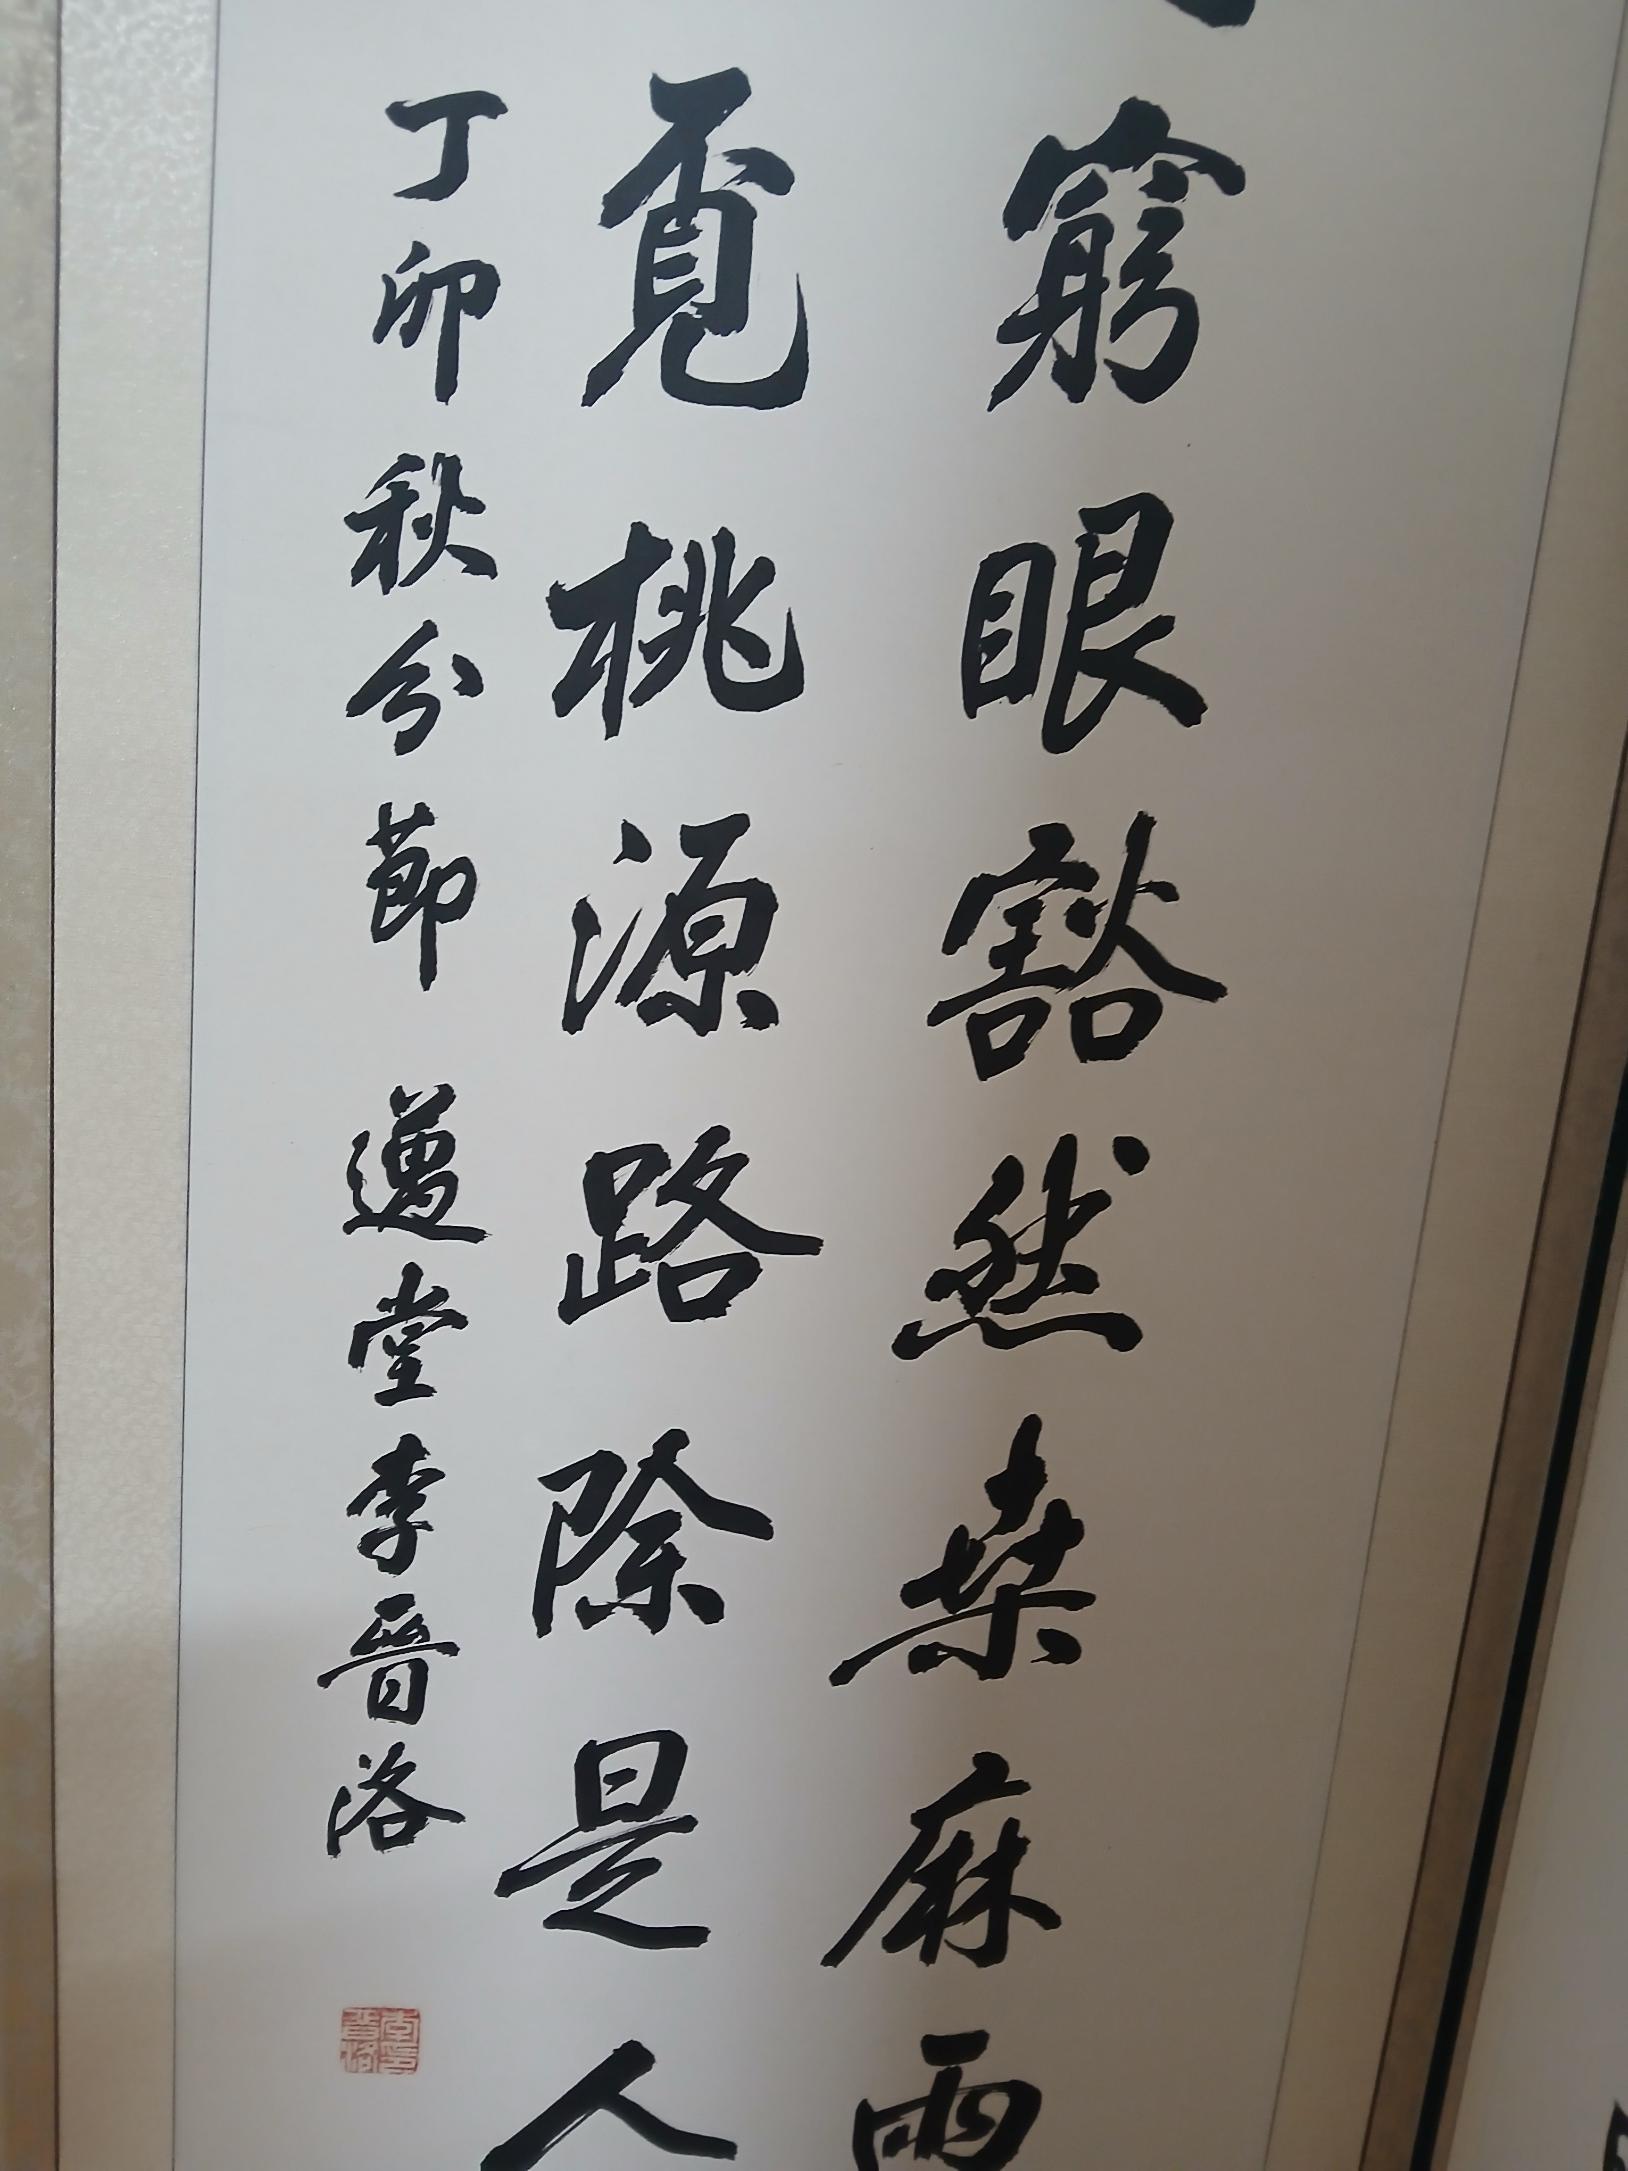 窮眼豁然桑麻雨
覔桃源路除是人
丁卯秋分節 邁堂李晉洛